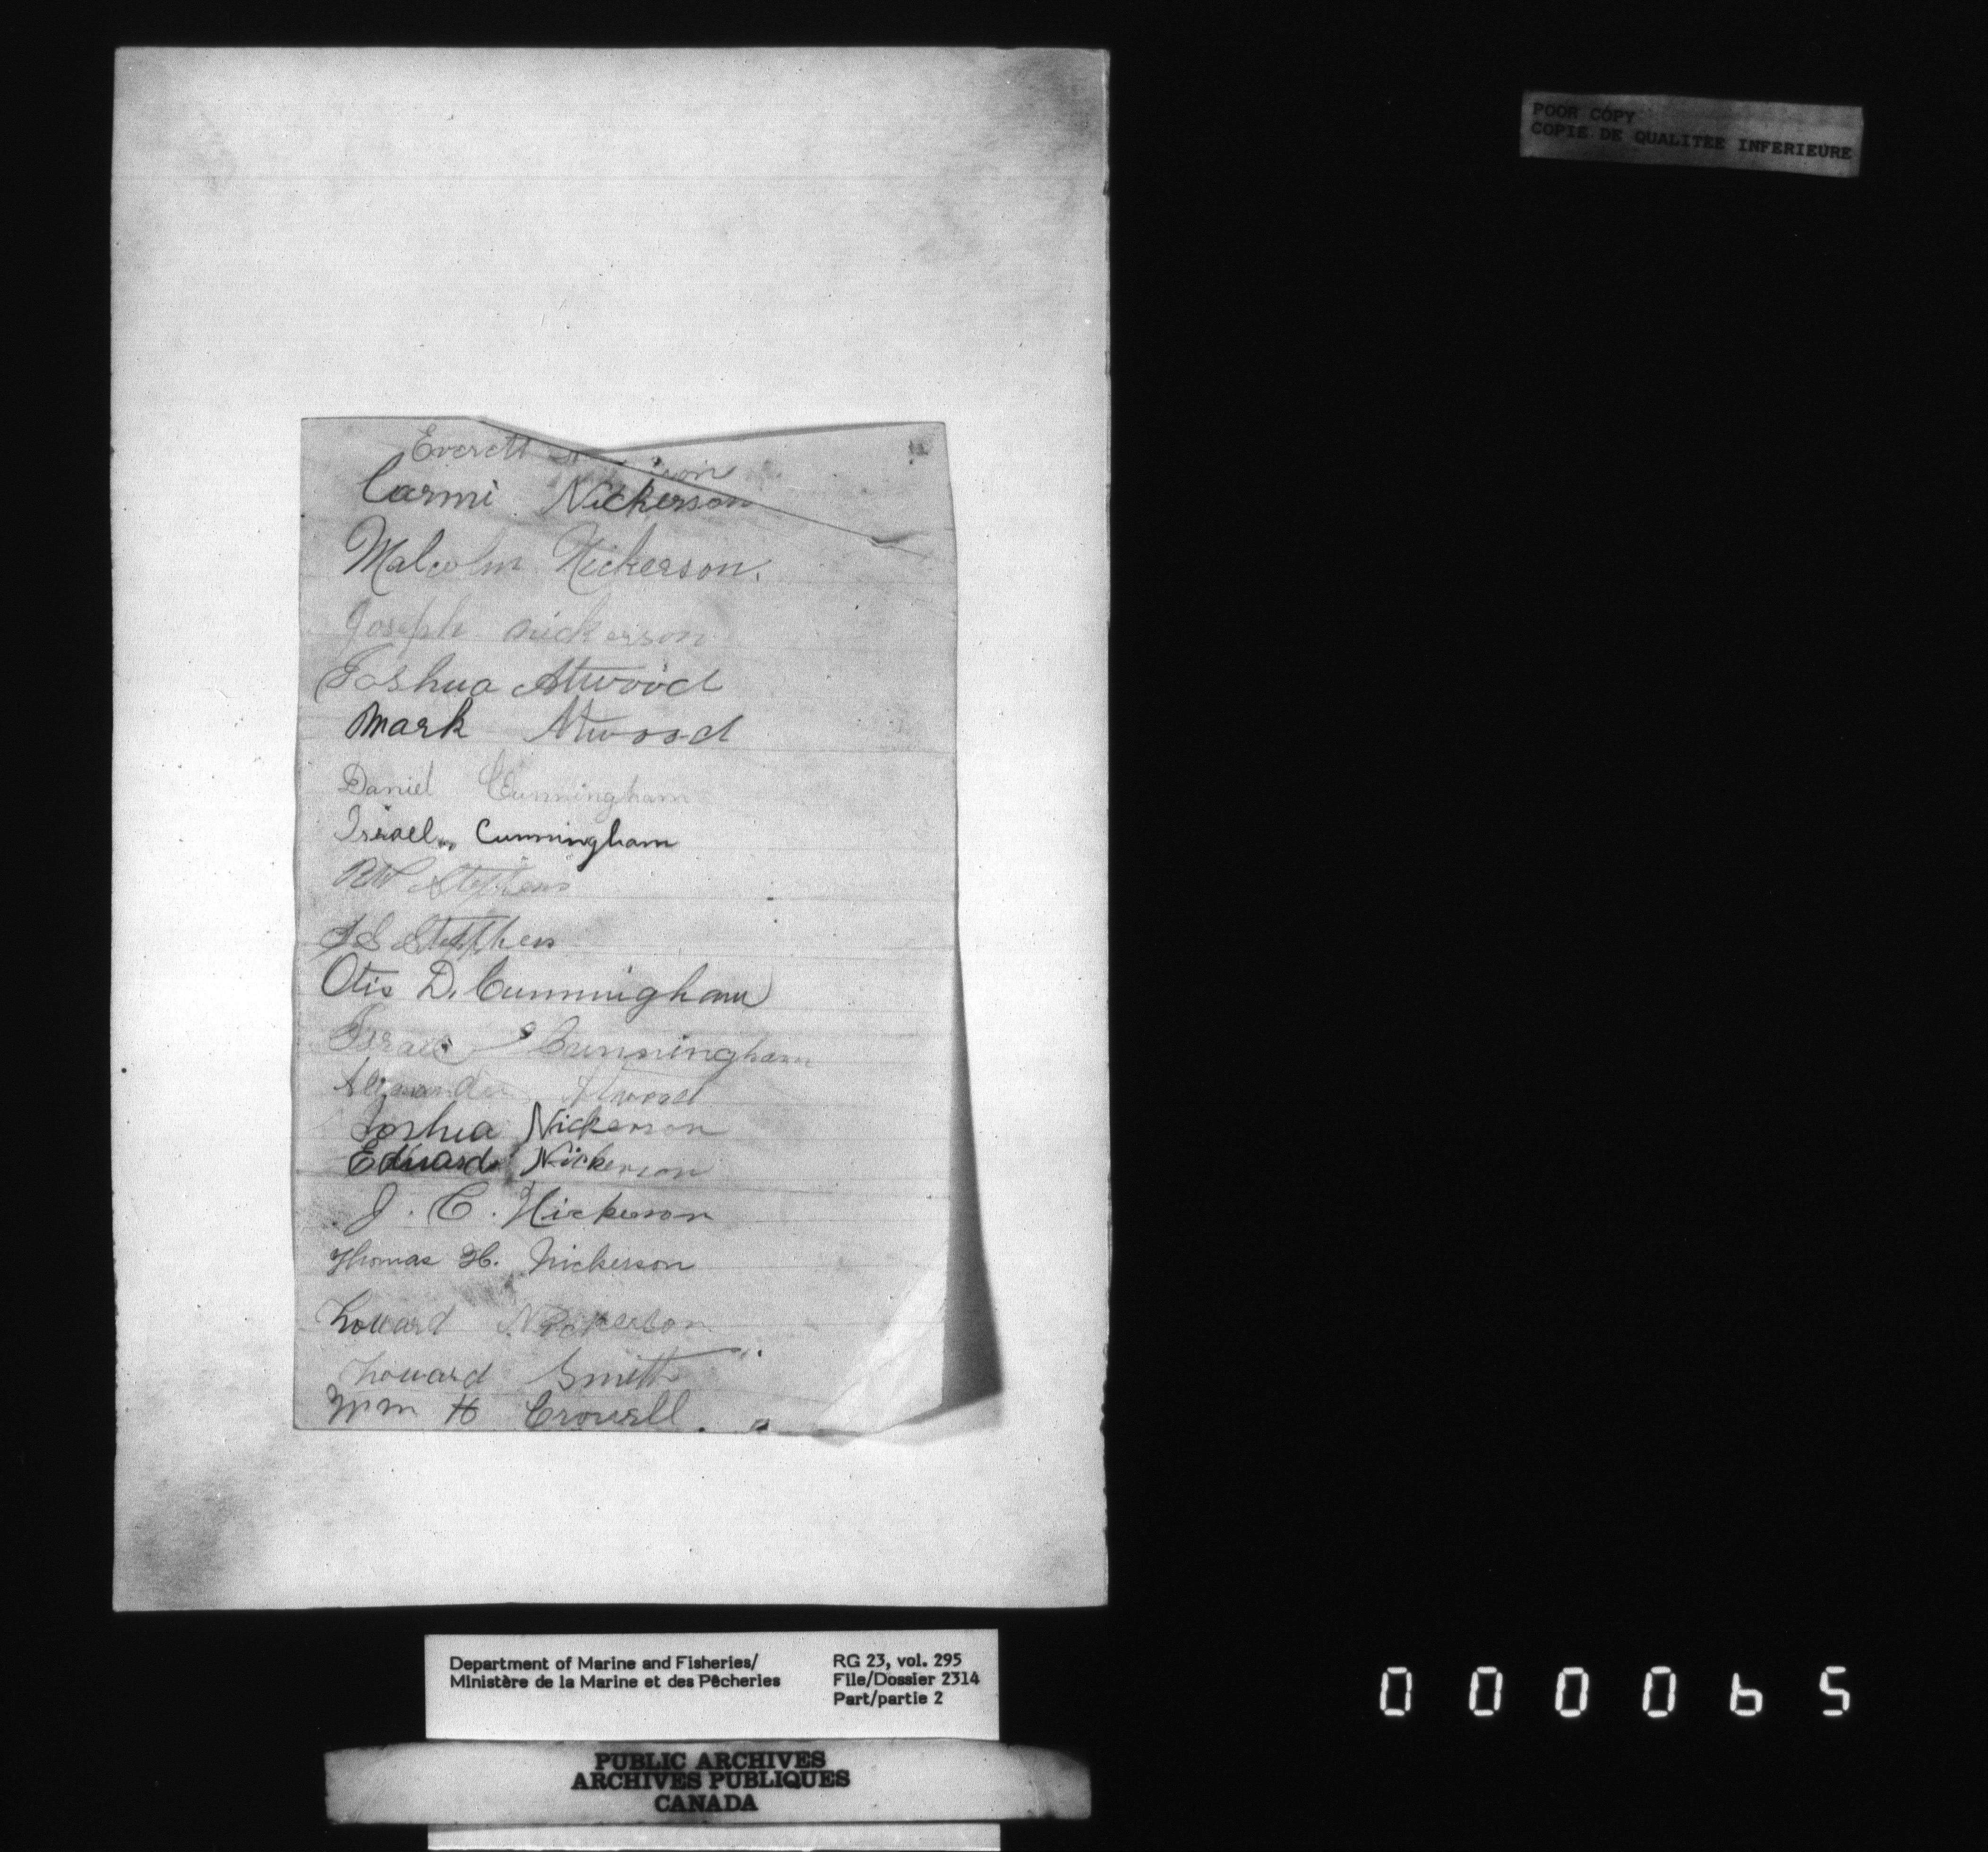 POOR COPY
COPIE DE QUALITEE INFERIEURE
Everett
Carmi Nickerson
Malcolm Nickerson.
Joseph nickerson
Joshua Atwood
Mark Atwood
Daniel Cunningham
Israel Cunningham
RW Stephens
Stephen
Otis D. Cunningham
Israel Cunningham
Alexander Atwood
Joshua Nickerson
Edward Nickerson
J. C. Nickerson
Thomas H. Nickerson
Howard Nickerson
Howard Smith
Wm H Crowell
Department of Marine and Fisheries/ RG 23, vol. 295
Ministère de la Marine et des Pêcheries File/Dossier 2314
Part/partie 2
PUBLIC ARCHIVES
ARCHIVES PUBLIQUES
CANADA
000065